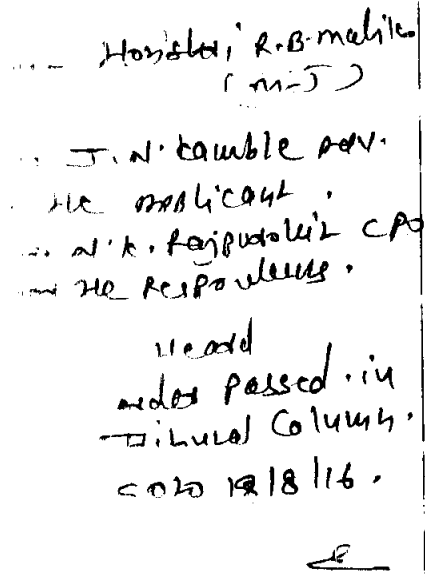 Hon'ble Shri R.B. Malik
(M-J)
J.N. Kamble Adv.
the applicant.
N.K. Rajpurohit CPO
the Respondents.
Heard
order passed in
Tribunal Column.
S.O. to 12/8/16.